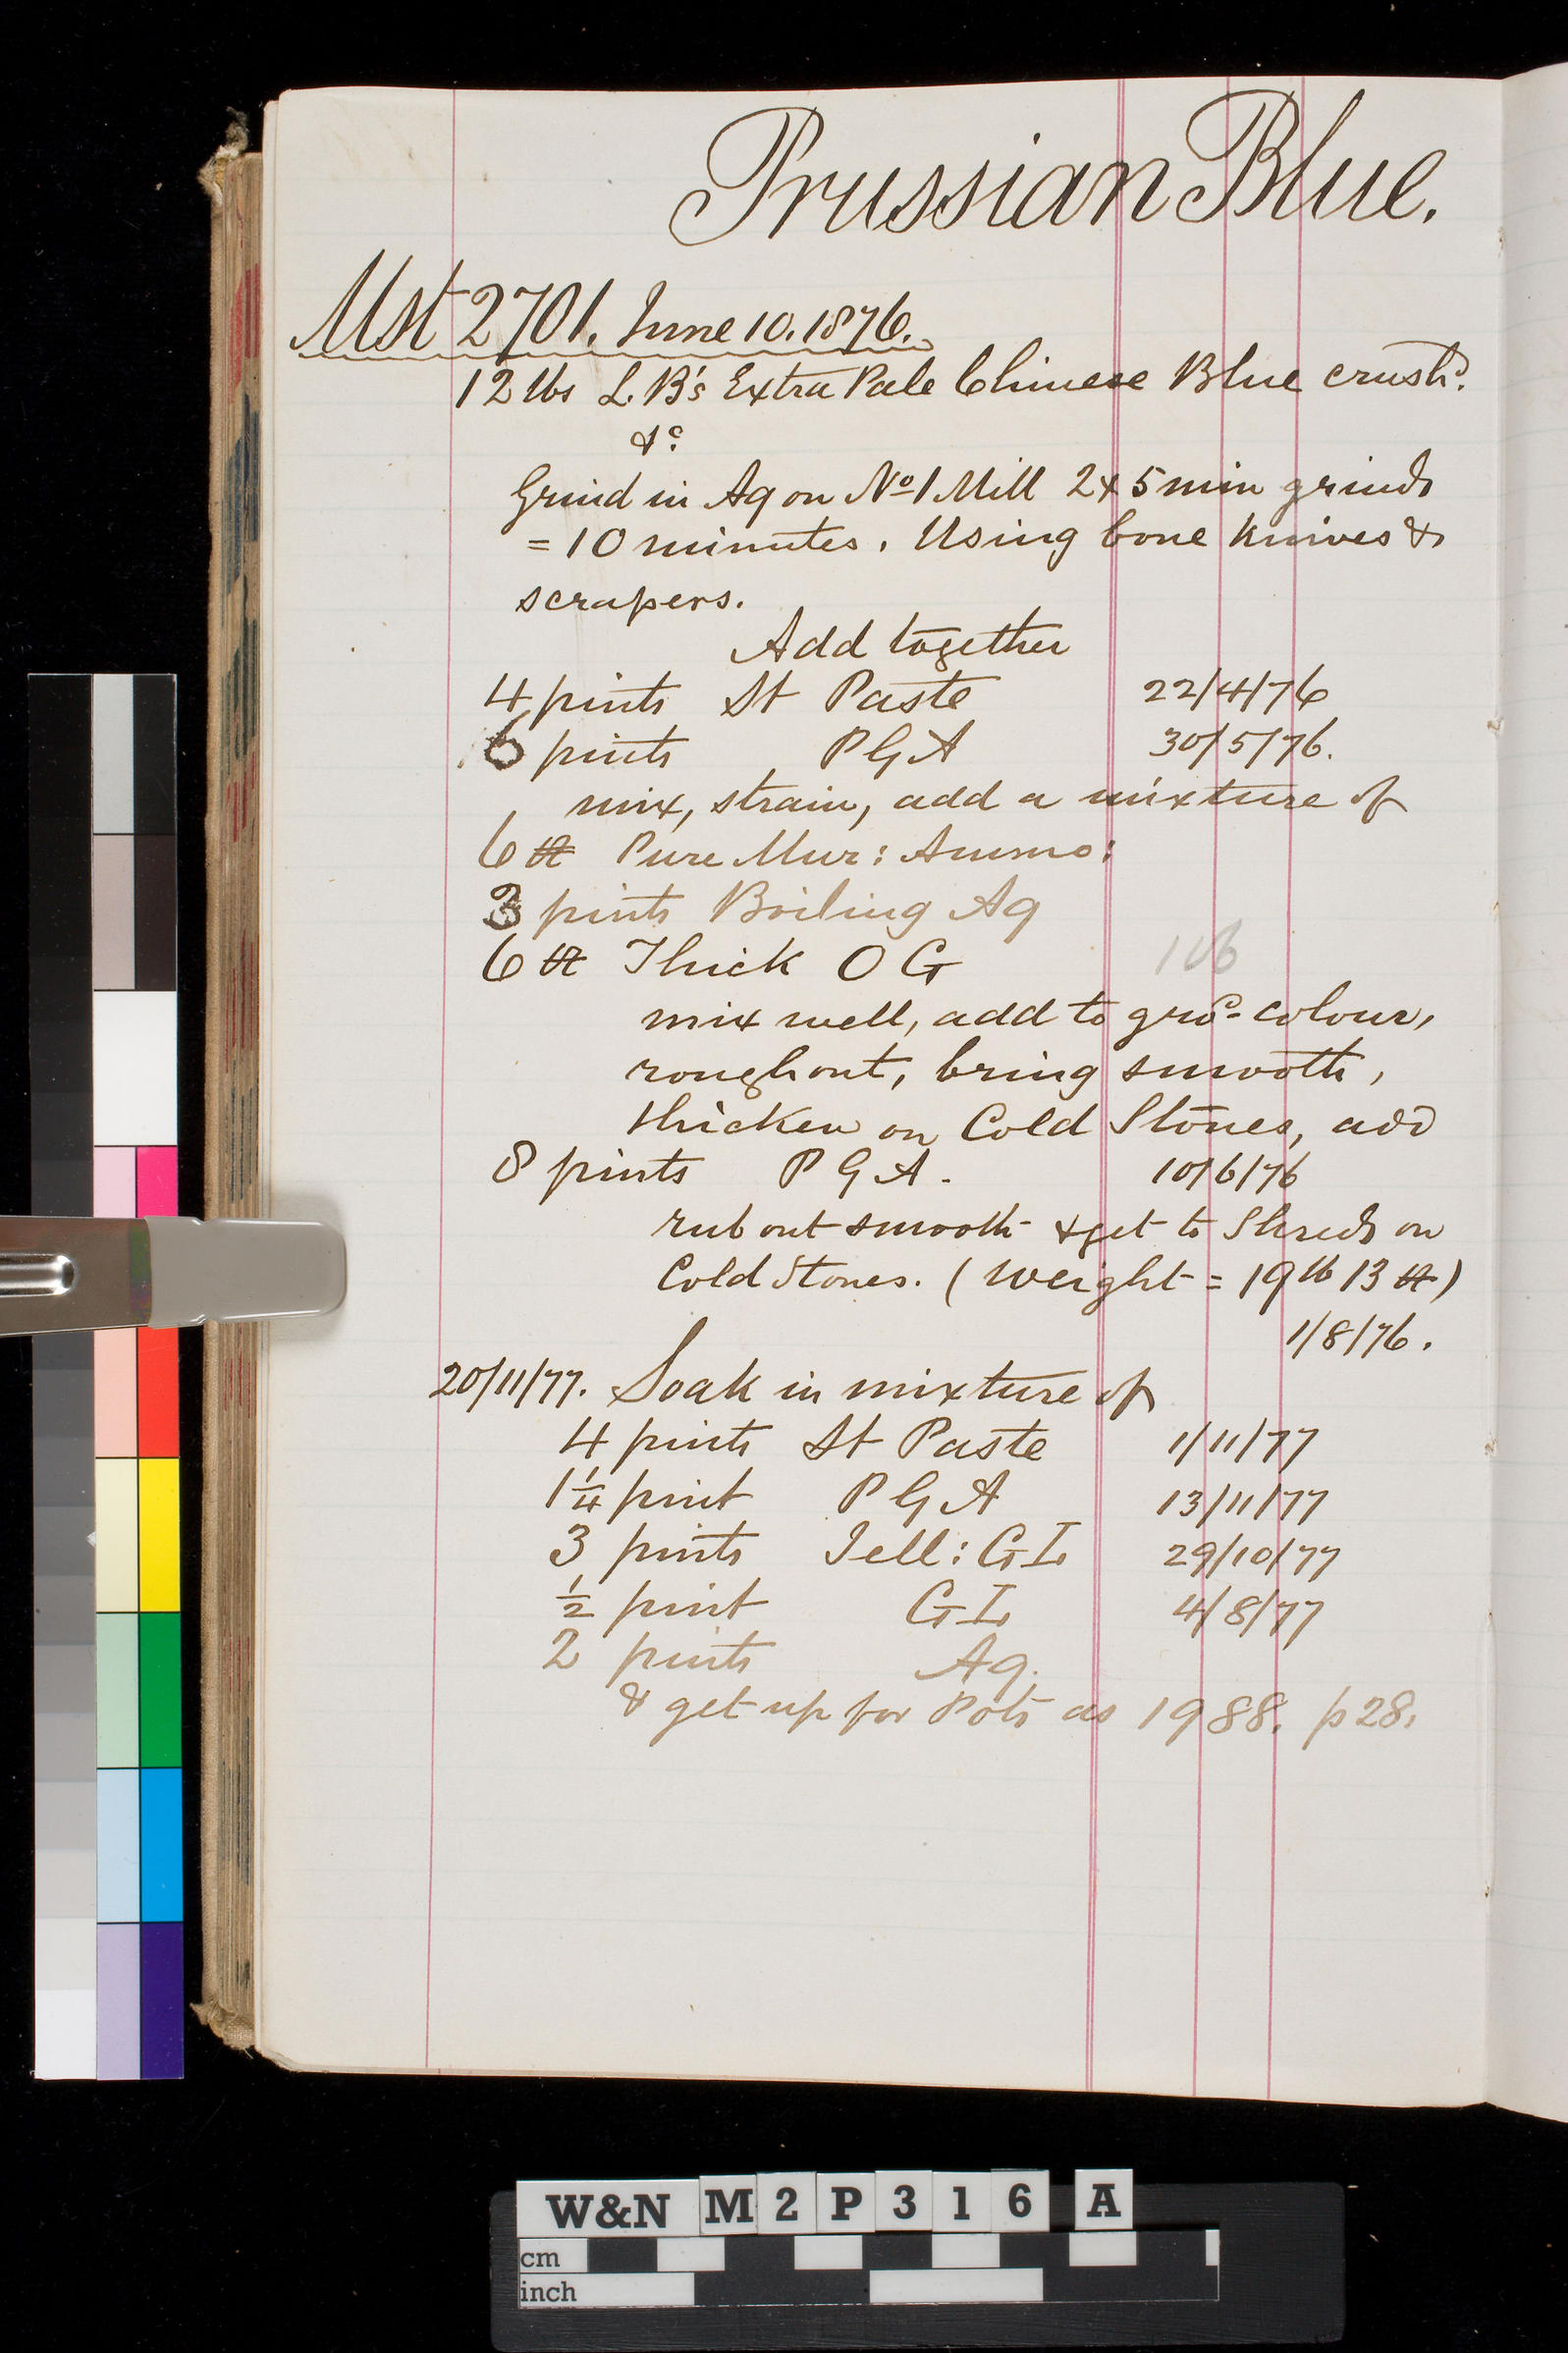 Prussian Blue.
Mst 2701. June 10. 1876.
12 lbs L. B's Extra Pale Chinese Blue crushd.
&c.
Grind in Aq on No 1 Mill 2 x 5 min grinds
= 10 minutes. Using bone knives &
scrapers.
Add together
4 pints St Paste 22/4/76
6 pints P G A 30/5/76.
mix, strain, add a mixture of
6 Pure Mur: Ammo:
3 pints Boiling Aq
6 Thick O G 106
mix well, add to grd- colour,
rough out, bring smooth,
thicken on Cold Stones, add
8 pints P G A. 10/6/76
rub out smooth & get to Shreds on
Cold Stones. (Weight = 19 lb 13)
1/8/76.
20/11/77. Soak in mixture of
4 pints St Paste 1/11/77
1 1/4 pint P G A 13/11/77
3 pints Jell: G L 29/10/77
1/2 pint G L 4/8/77
2 pints Aq.
& get up for Pots as 1988. p 28.
W&N M 2 P 3 1 6 A
cm
inch